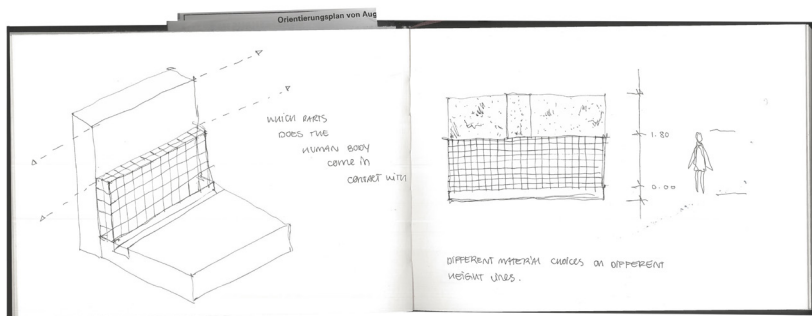 Orientierungsplan von Aug
WHICH PARTS
DOES THE
HUMAN BODY
COME IN
CONTACT WITH
1.80
0.00
DIFFERENT MATERIAL CHOICES ON DIFFERENT
HEIGHT LINES.